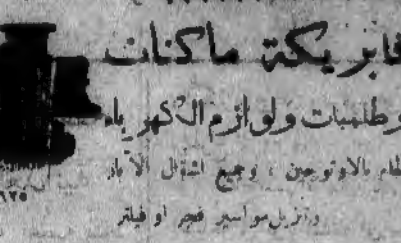 فابريكة ماكنات
وطلمبات ولوازم الكهرباء
بالاوتوجين ، وجميع اشغال الآبار
وتنزيل مواسير فجر او فيلتر